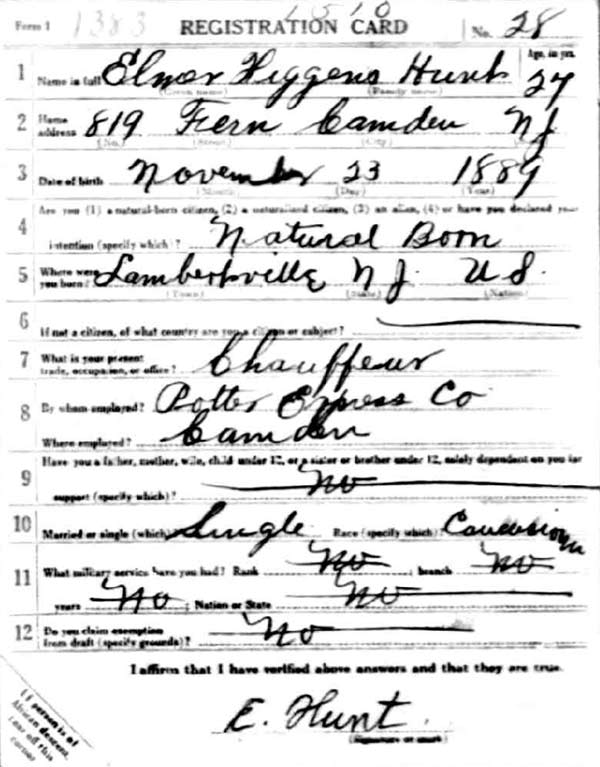 Form 1 1383 REGISTRATION CARD No. 28
1 Name in full Elmer Higgens Hunt Age, in yrs. 27
(Given name) (Family name)
2 Home address 819 Fern Camden NJ
(No.) (Street) (City)
3 Date of birth November 23 1889
(Month) (Day) (Year)
Are you (1) a natural-born citizen, (2) a naturalized citizen, (3) an alien, (4) or have you declared your
4 intention (specify which)? Natural Born
5 Where were you born? Lambertville NJ US.
(Town) (State) (Nation)
6 If not a citizen, of what country are you a citizen or subject?
7 What is your present trade, occupation, or office? Chauffeur
8 By whom employed? Potter Express Co
Where employed? Camden
Have you a father, mother, wife, child under 12, or a sister or brother under 12, solely dependent on you for
9 support (specify which)? No
10 Married or single (which)? Single Race (specify which)? Caucasion
11 What military service have you had? Rank No ; branch No
years No ; Nation or State No
12 Do you claim exemption from draft (specify grounds)? No
I affirm that I have verified above answers and that they are true.
E. Hunt.
(Signature or mark)
If person is of
African descent,
tear off this
corner